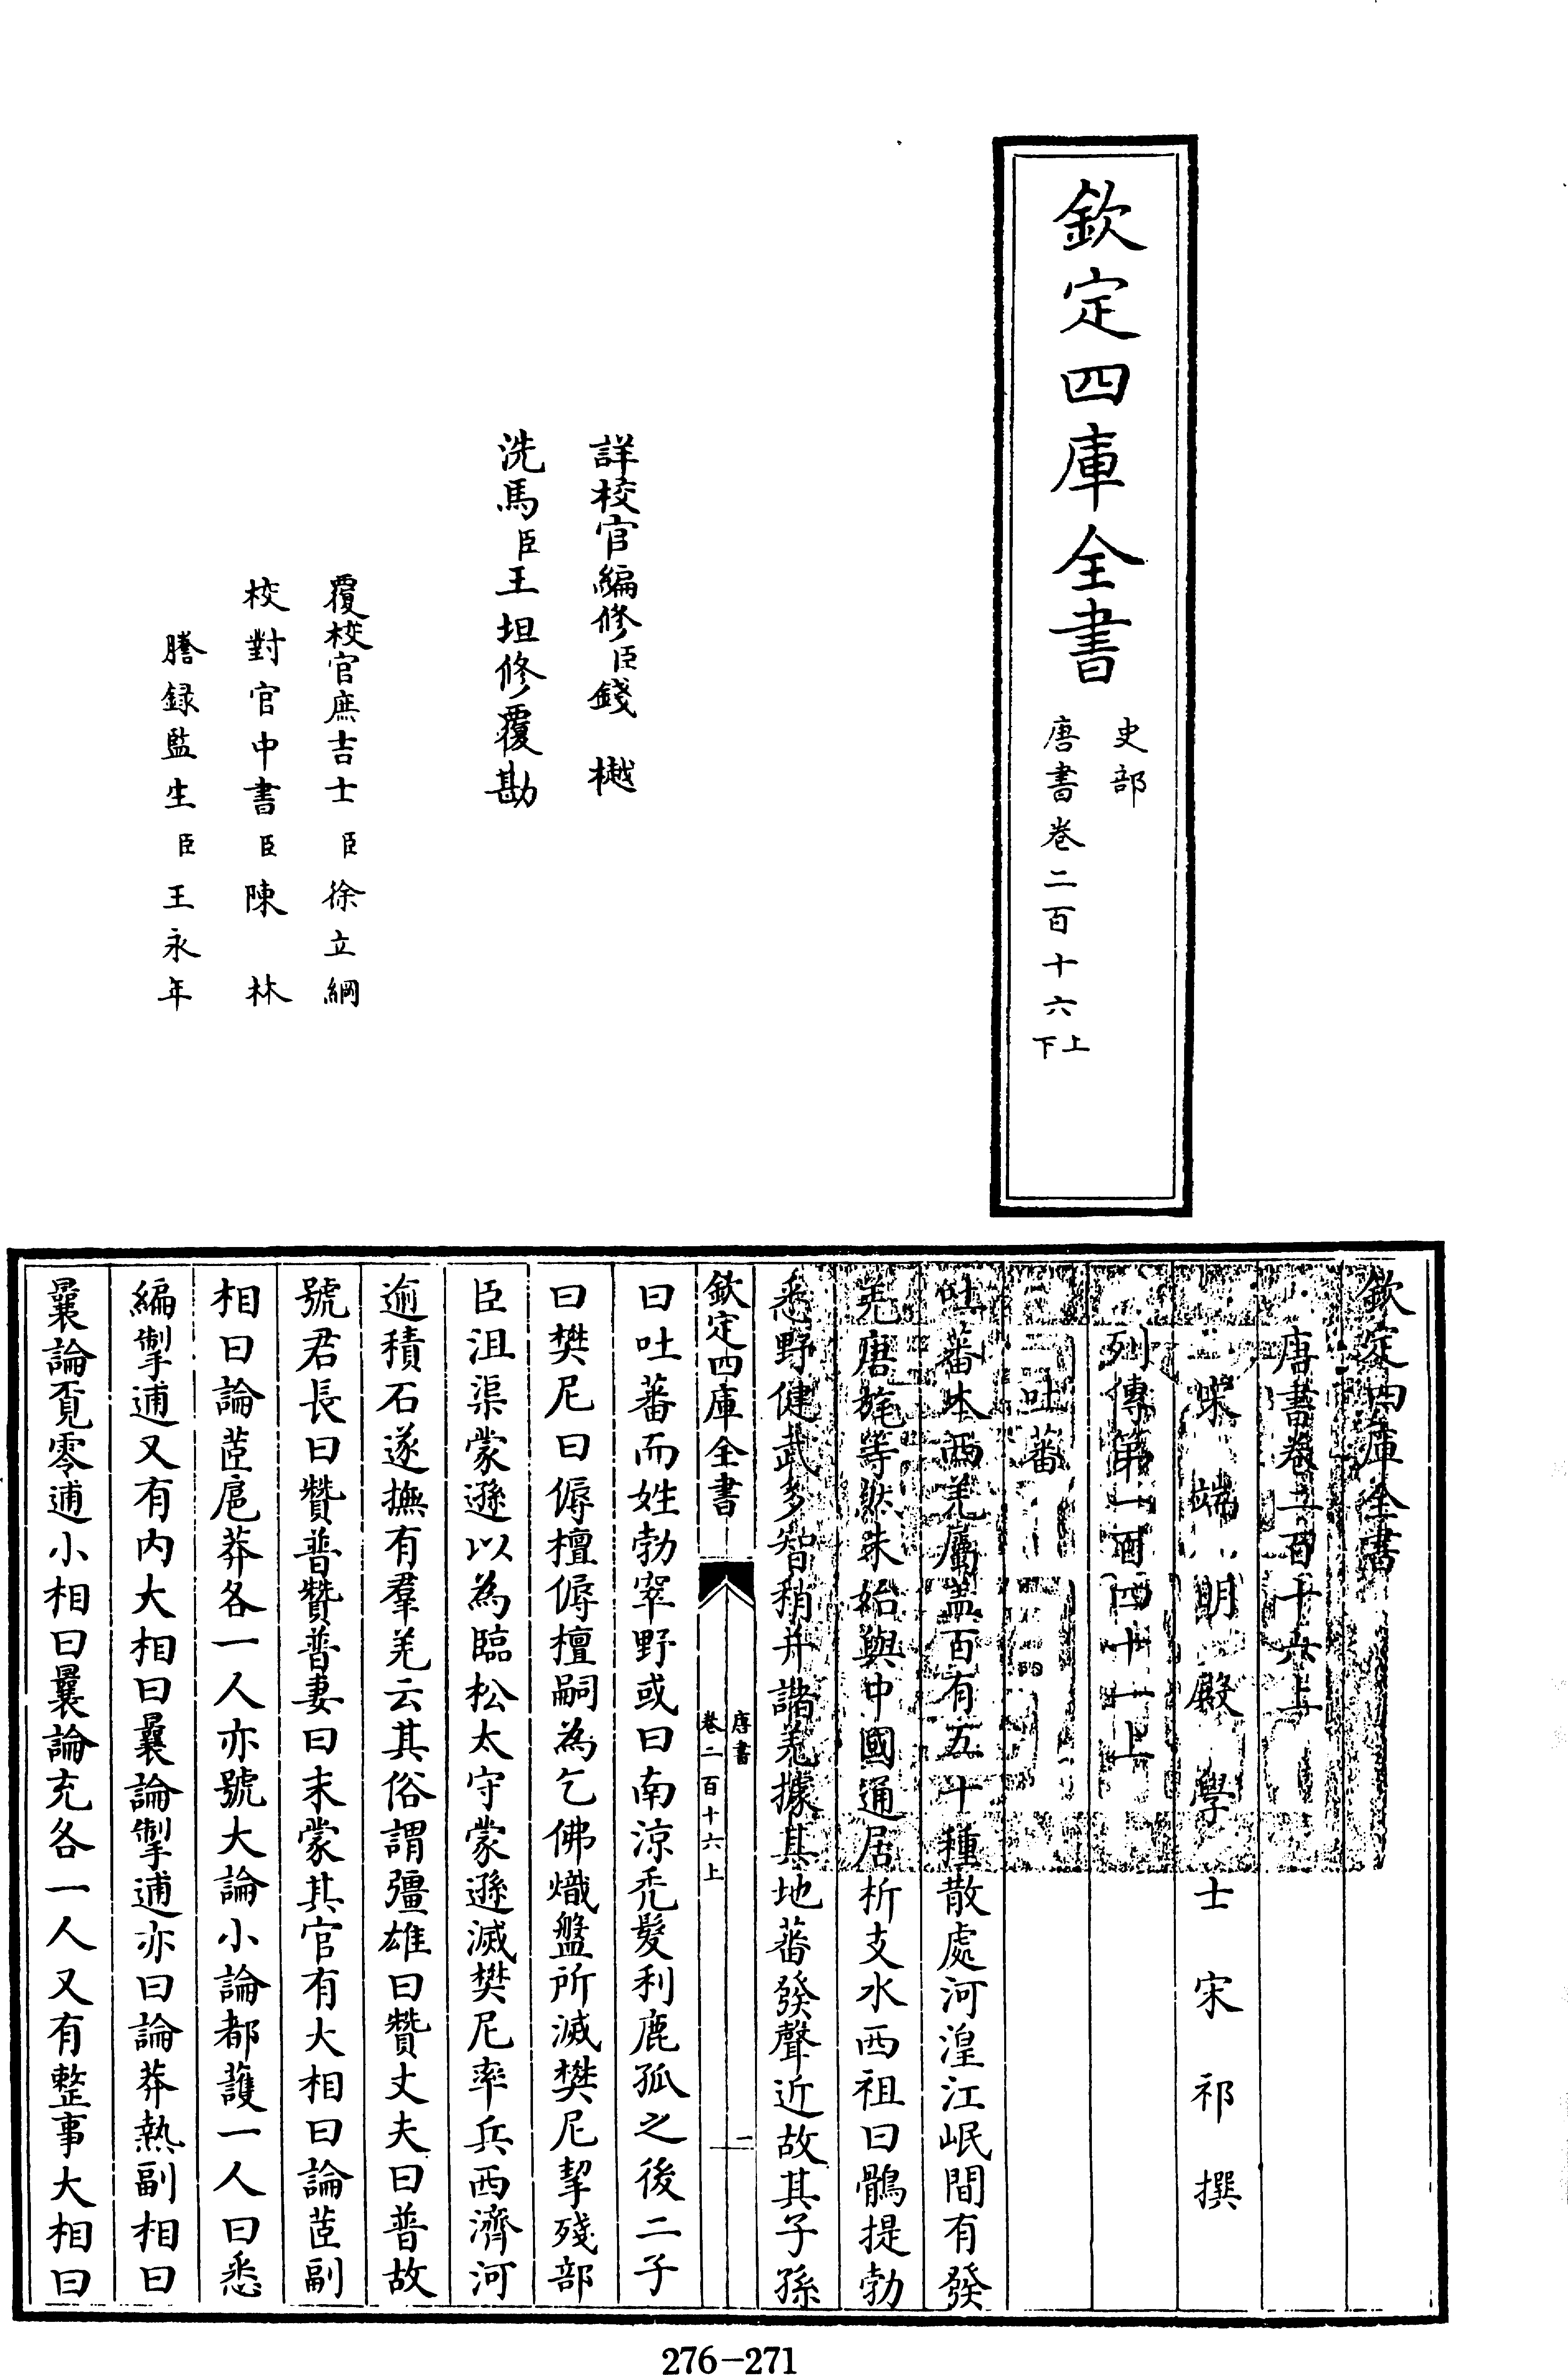 欽定四庫全書
史部
唐書卷二百十六上下
詳校官編修臣錢樾
洗馬臣王坦修覆勘
覆校官庶吉士臣徐立綱
校對官中書臣陳林
謄録監生臣王永年
欽定四庫全書
唐書卷二百十六上
宋端明殿學士宋祁撰
列傳第一百四十一上
吐蕃
吐蕃本西羌屬盖百有五十種散處河湟江岷間有發
羌唐旄等然未始與中國通居析支水西祖曰鶻提勃
悉野健武多智稍并諸羌據其地蕃發聲近故其子孫
欽定四庫全書
唐書
卷二百十六上
曰吐蕃而姓勃窣野或曰南涼禿髮利鹿孤之後二子
曰樊尼曰傉檀傉檀嗣為乞佛熾盤所滅樊尼挈殘部
臣沮渠蒙遜以為臨松太守蒙遜滅樊尼率兵西濟河
逾積石遂撫有羣羌云其俗謂彊雄曰贊丈夫曰普故
號君長曰贊普贊普妻曰末蒙其官有大相曰論茝副
相曰論茝扈莽各一人亦號大論小論都護一人曰悉
編掣逋又有内大相曰曩論掣逋亦曰論莽熱副相曰
曩論覔零逋小相曰曩論充各一人又有整事大相曰
276-271